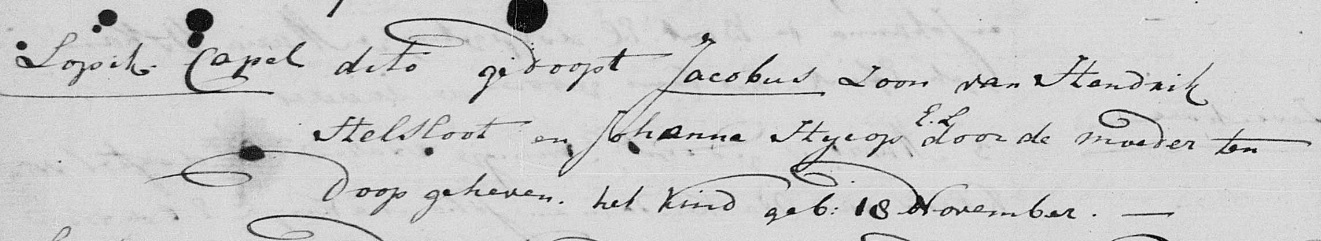 Lopik. Capel dito gedoopt Jacobus Zoon van Hendrik
Stelsloot en Johanna Styrop E.L. door de moeder ten
Doop geheven. het Kind geb: 18 November. —